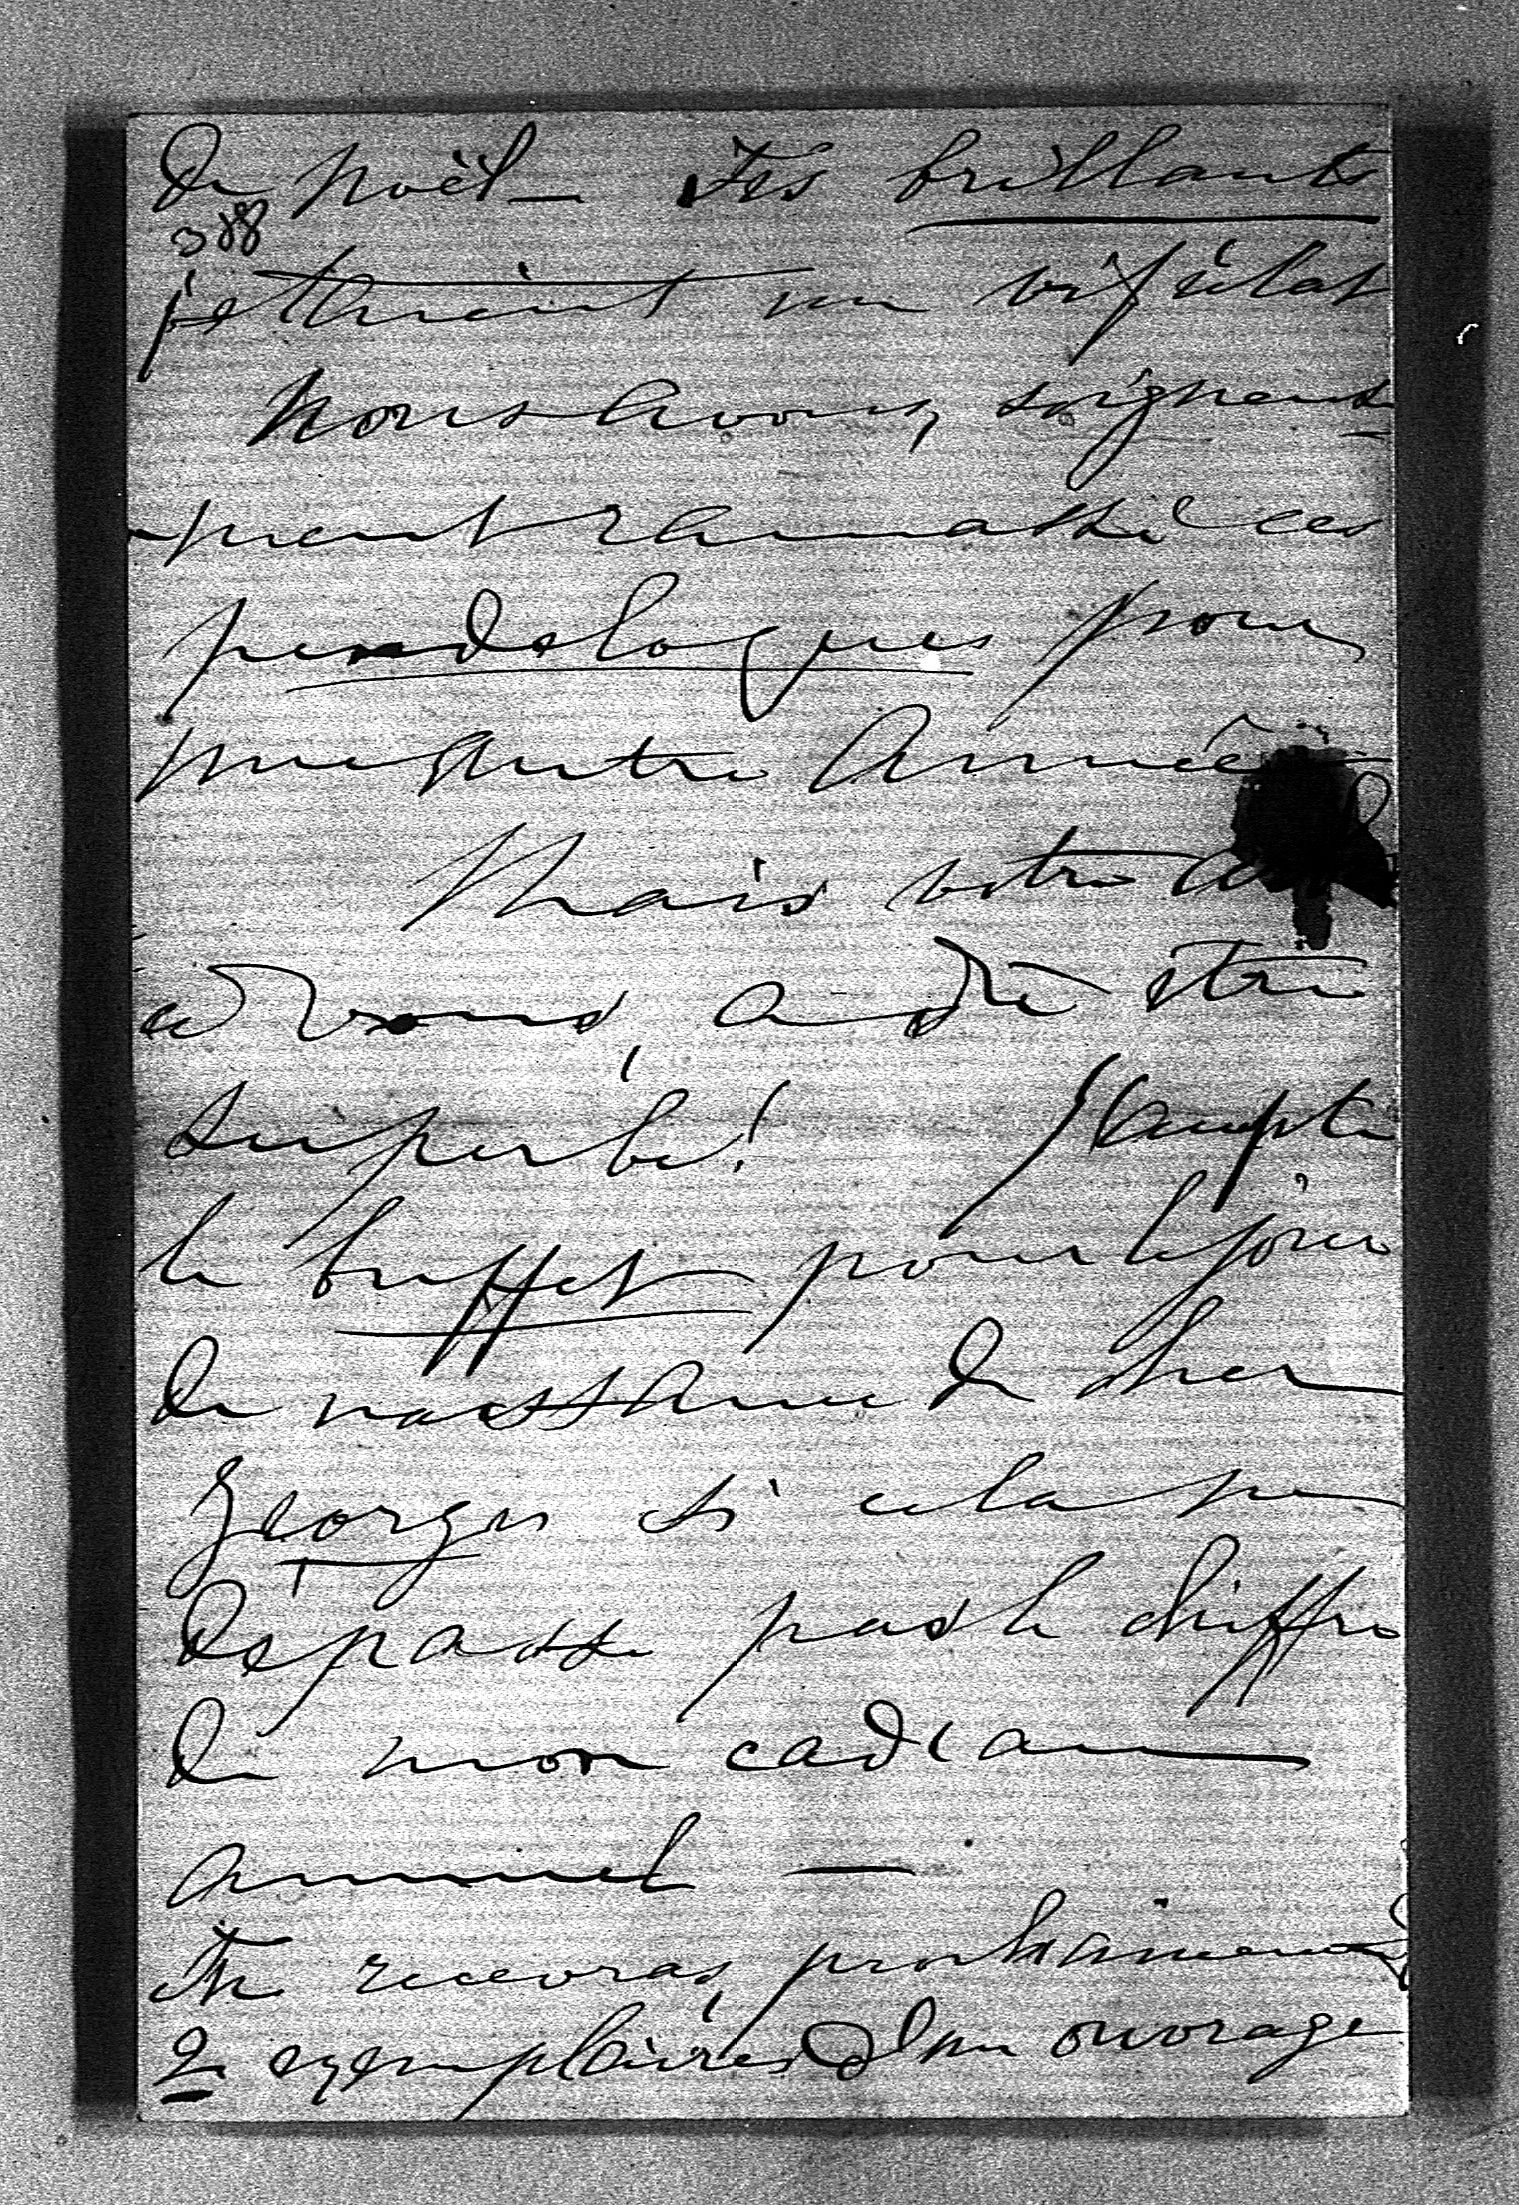 de Noël — Tes brillants
388
jettaient un vif éclat
Nous avons, soigneuse
ment ramassé ces
pendeloques pour
une autre Année
Mais votre
à vous a dû être
superbe! J'accepte
le buffet pour le jour
de naissance de cher
Georges si cela ne
dépasse pas le chiffre
de mon cadeau
annuel —
Tu recevras prochainement
2 exemplaires d'un ouvrage